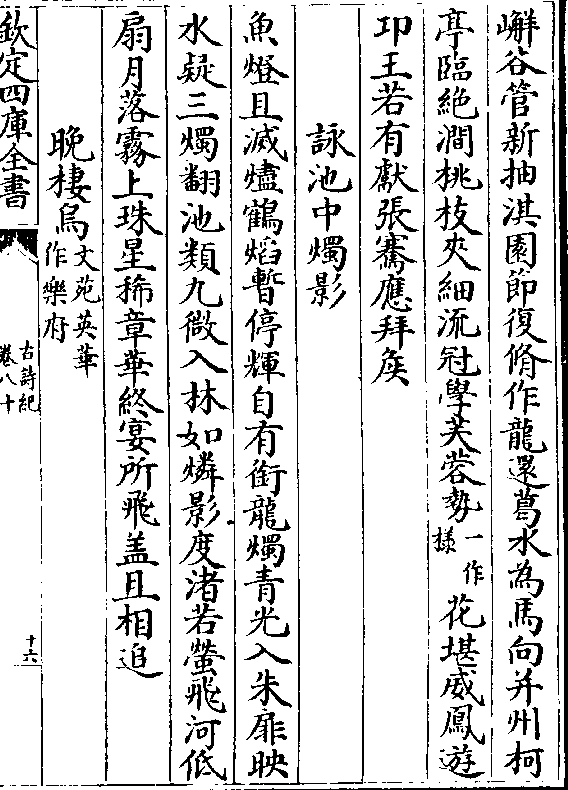 嶰谷管新抽淇園節復脩作龍還葛水為馬向并州柯
亭臨絶澗桃枝夾細流冠學芙蓉勢一作様花堪威鳳遊
卭王若有獻張騫應拜矦
詠池中燭影
魚燈且滅燼鶴焰暫停輝自有銜龍燭青光入朱扉映
水疑三燭翻池類九微入林如燐影度渚若螢飛河低
扇月落霧上珠星稀章華終宴所飛盖且相追
晚棲烏文苑英華作樂府
欽定四庫全書
古詩紀
卷八十
十六